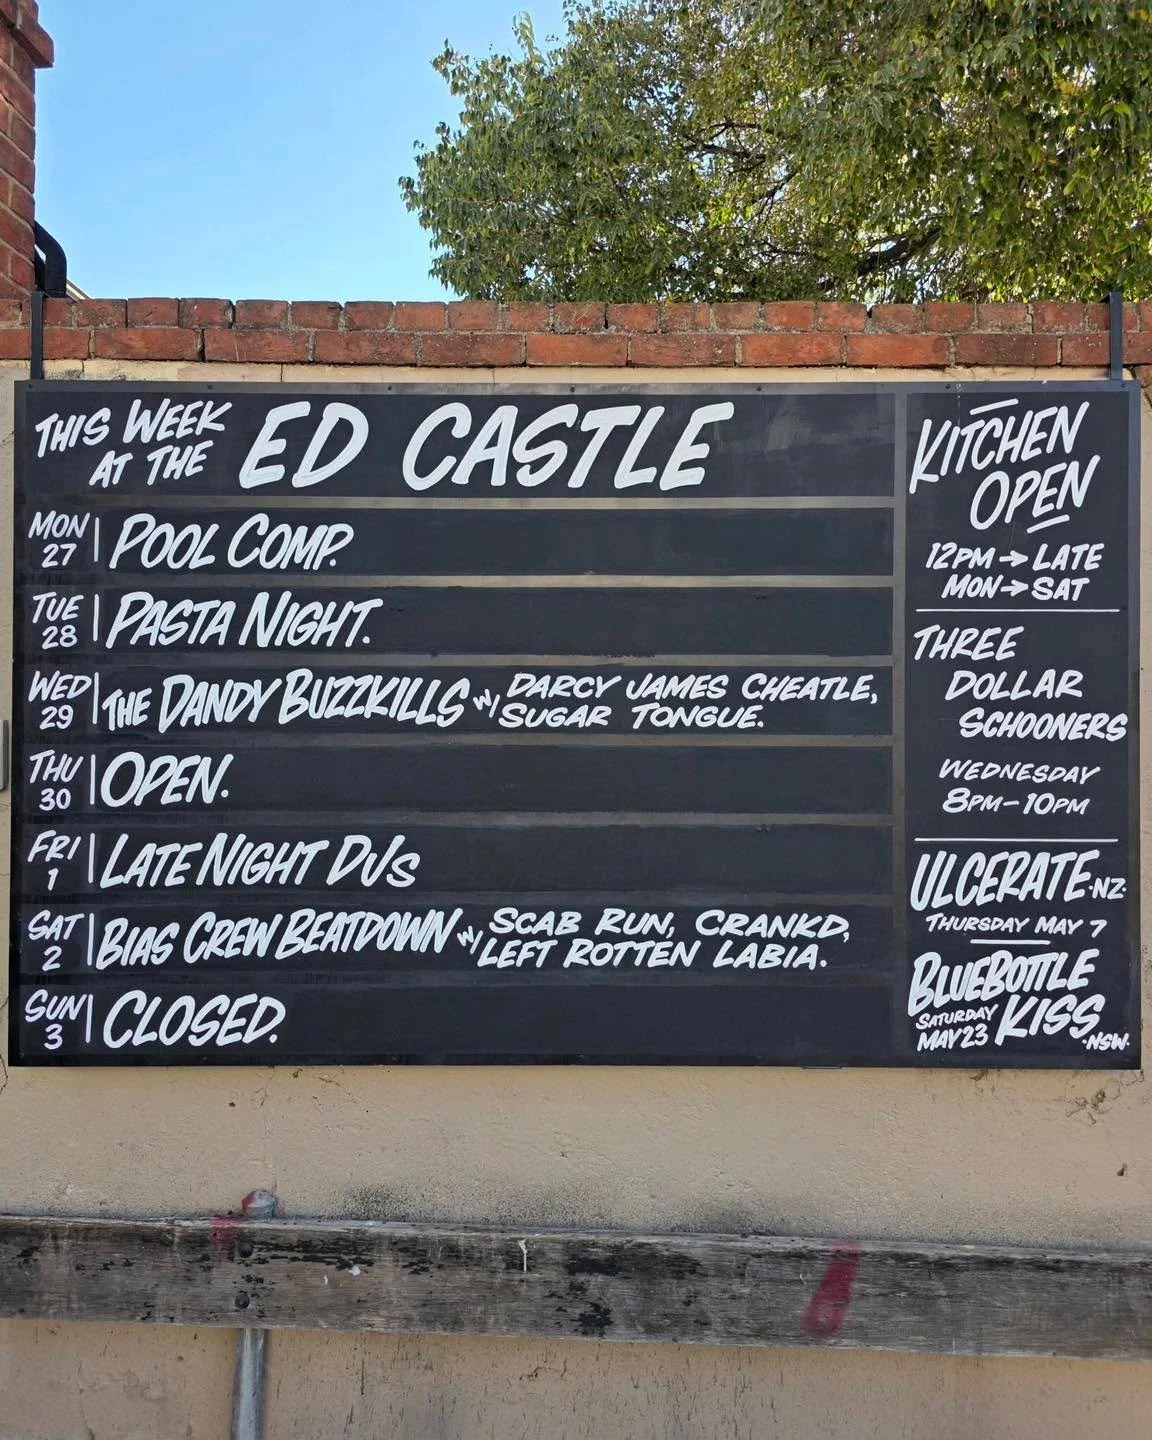 THIS WEEK
AT THE
ED CASTLE
MON
27
POOL COMP.
TUE
28
PASTA NIGHT.
WED
29
THE DANDY BUZZKILLS W/ DARCY JAMES CHEATLE,
SUGAR TONGUE.
THU
30
OPEN.
FRI
1
LATE NIGHT DJS
SAT
2
BIAS CREW BEATDOWN W/ SCAB RUN, CRANKD,
LEFT ROTTEN LABIA.
SUN
3
CLOSED.
KITCHEN
OPEN
12PM → LATE
MON → SAT
THREE
DOLLAR
SCHOONERS
WEDNESDAY
8PM – 10PM
ULCERATE ·NZ·
THURSDAY MAY 7
BLUEBOTTLE
KISS ·NSW·
SATURDAY
MAY 23